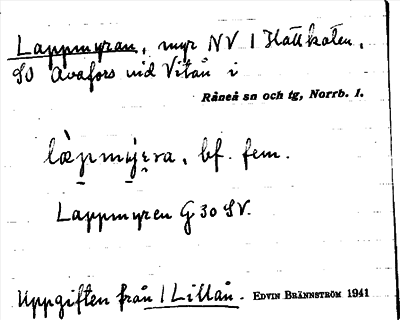 Lappmyran, myr NV I Hattkåten,
SO Avafors vid Vitån i
Råneå sn och tg, Norrb. l.
bf. fem.
Lappmyren G 30 SV.
Uppgiften från I Lillån. EDVIN BRÄNNSTRÖM 1941